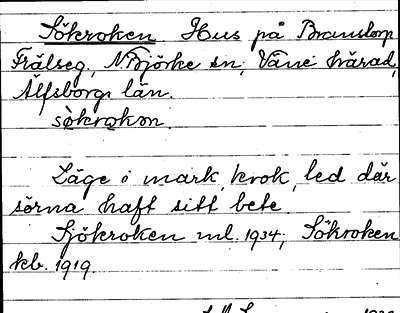 Sökroken Hus på Bramstorp
Frälseg., N. Björke sn, Väne härad,
Älfsborgs län.
sökrokən.
Läge i mark, krok, led där
sörna haft sitt bete.
Sjökroken ml. 1934; Sökroken
kb. 1919.